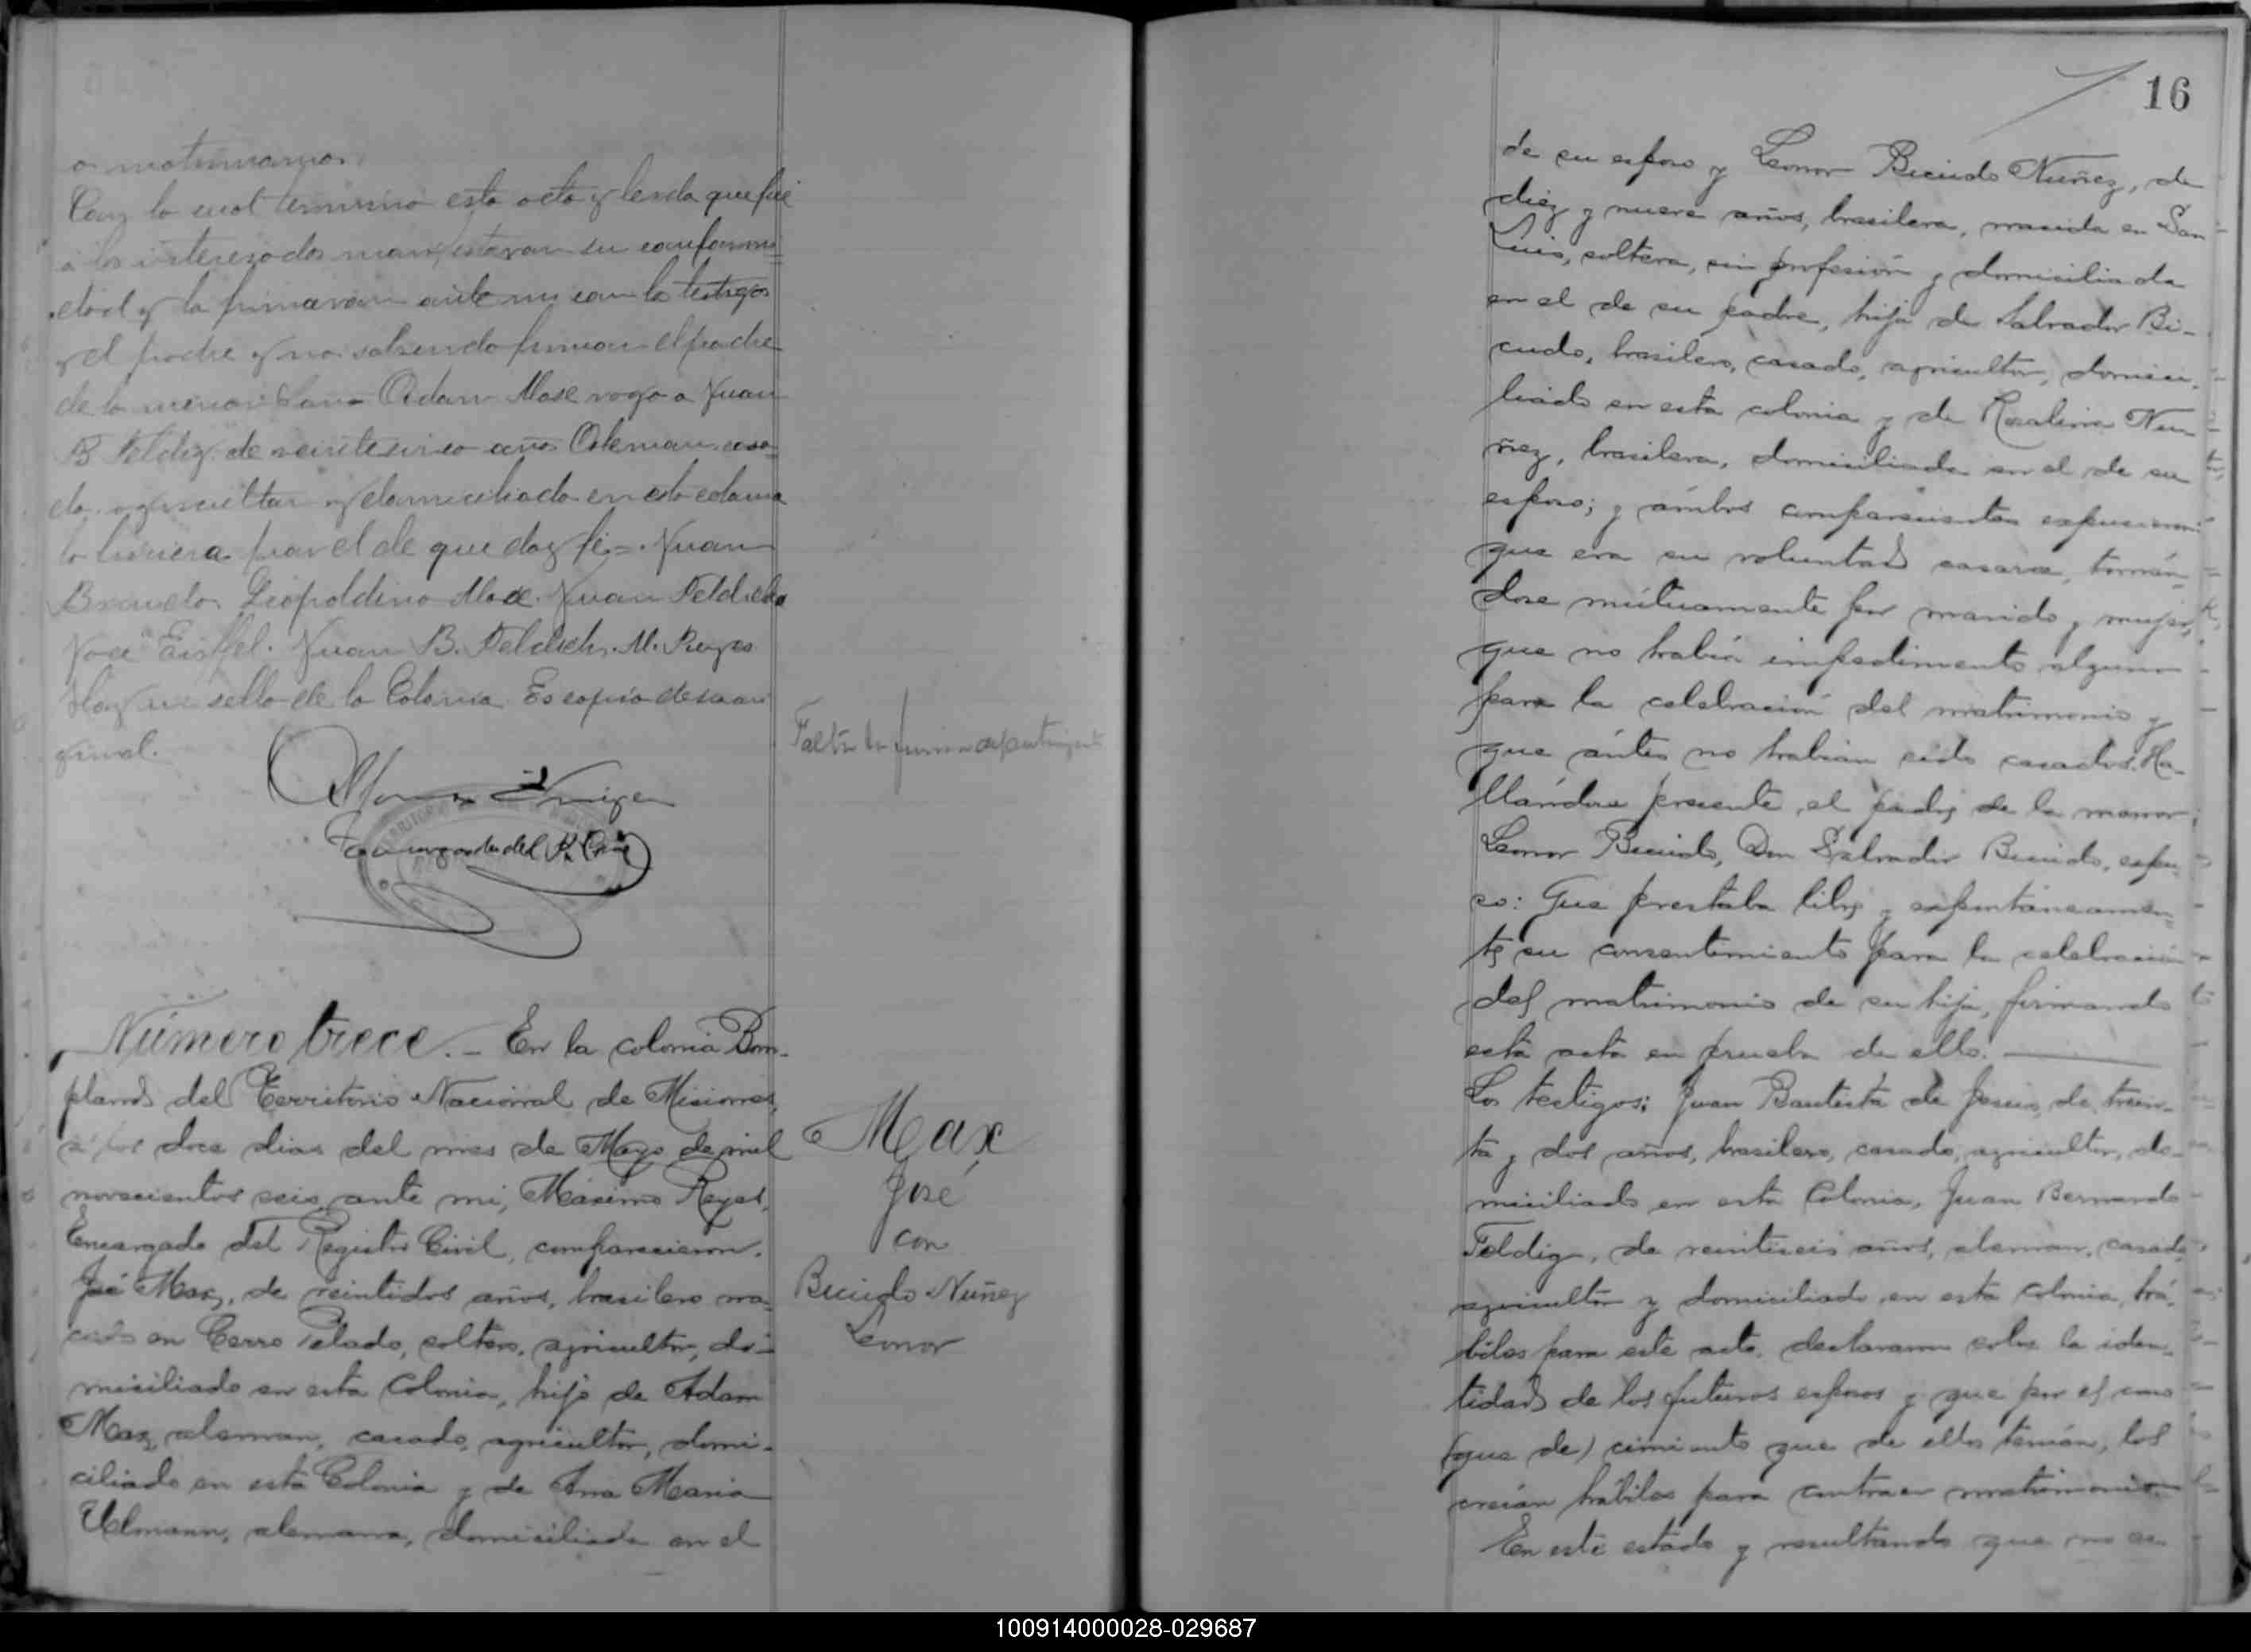 o matrimonio.
Con lo cual termino esta acta y leida que fué
á los interezados manifestaron su conformi=
dad y la firmaron ante mi con los testigos
y el padre y no sabiendo firmar el padre
de la menor Adam Mase rogo a Juan
B Feldig de veinticinco años Aleman casa=
do agricultor y domiciliado en esta colonia
lo hiciera por el de que doy fé=. Juan
Leopoldino Mase. Juan Feldich
José Eiffel. Juan B. Feldich. M. Reyes
Hay un sello de la Colonia. Es copia de su ori
ginal.
Falta la firma
Encargado del R. Civil
Número trece.- En la colonia Bom-
pland del Territorio Nacional de Misiones,
á los doce dias del mes de Mayo de mil
novecientos seis, ante mi, Máximo Reyes,
Encargado del Registro Civil, comparecieron.
José Max, de veintidos años, brasilero na-
cido en Cerro Pelado, soltero, agricultor, do-
miciliado en esta Colonia, hijo de Adam
Max, aleman, casado, agricultor, domi-
ciliado en esta Colonia y de Ana Maria
Ulmann, alemana, domiciliada en el
Max
José
con
Bicudo Nuñez
Leonor
16
de su esposo y Leonor Bicudo Nuñez, de
diez y nueve años, brasilera, nacida en San
Luis, soltera, sin profesión y domiciliada
en el de su padre, hija de Salvador Bi-
cudo, brasilero, casado, agricultor, domici-
liado en esta colonia y de Rosalina Nu
ñez, brasilera, domiciliada en el de su
esposo; y ámbos comparecientes expusieron:
que era su voluntad casarse, tomán
dose mútuamente por marido y mujer,
que no había impedimento alguno
para la celebración del matrimonio y
que ántes no habian sido casados. Ha-
llándose presente el padre de la menor,
Leonor Bicudo, Don Salvador Bicudo, expu-
so: Que prestaba libre y expontáneamen-
te su consentimiento para la celebración
del matrimonio de su hija, firmando
esta acta en prueba de ello.
Los testigos: Juan Bautista de Jesus, de trein-
ta y dos años, brasilero, casado, agricultor, do-
miciliado en esta Colonia, Juan Bernardo
Feldig, de veintiseis años, aleman, casado,
agricultor y domiciliado en esta colonia, há-
biles para este acto, declararon sobre la iden-
tidad de los futuros esposos y que por el cono
(que de) cimiento que de ellos tenían, los
creían hábiles para contraer matrimonio.
En este estado y resultando que no se
100914000028-029687